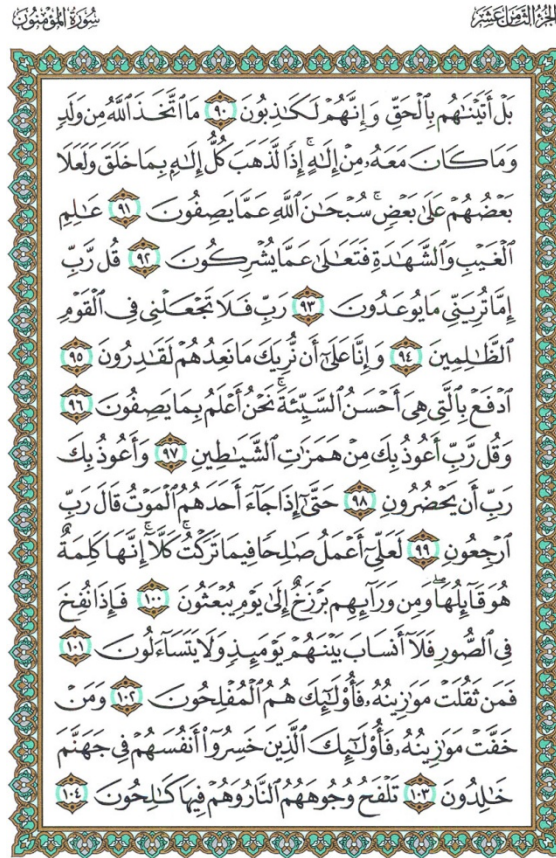 الجزء الثامن عشر
سورة المؤمنون
بَلْ أَتَيْنَٰهُم بِٱلْحَقِّ وَإِنَّهُمْ لَكَٰذِبُونَ ٩٠ مَا ٱتَّخَذَ ٱللَّهُ مِن وَلَدٍ
وَمَا كَانَ مَعَهُۥ مِنْ إِلَٰهٍ ۚ إِذًا لَّذَهَبَ كُلُّ إِلَٰهٍۭ بِمَا خَلَقَ وَلَعَلَا
بَعْضُهُمْ عَلَىٰ بَعْضٍ ۚ سُبْحَٰنَ ٱللَّهِ عَمَّا يَصِفُونَ ٩١ عَٰلِمِ
ٱلْغَيْبِ وَٱلشَّهَٰدَةِ فَتَعَٰلَىٰ عَمَّا يُشْرِكُونَ ٩٢ قُل رَّبِّ
إِمَّا تُرِيَنِّى مَا يُوعَدُونَ ٩٣ رَبِّ فَلَا تَجْعَلْنِى فِى ٱلْقَوْمِ
ٱلظَّٰلِمِينَ ٩٤ وَإِنَّا عَلَىٰٓ أَن نُّرِيَكَ مَا نَعِدُهُمْ لَقَٰدِرُونَ ٩٥
ٱدْفَعْ بِٱلَّتِى هِىَ أَحْسَنُ ٱلسَّيِّئَةَ ۚ نَحْنُ أَعْلَمُ بِمَا يَصِفُونَ ٩٦
وَقُل رَّبِّ أَعُوذُ بِكَ مِنْ هَمَزَٰتِ ٱلشَّيَٰطِينِ ٩٧ وَأَعُوذُ بِكَ
رَبِّ أَن يَحْضُرُونِ ٩٨ حَتَّىٰٓ إِذَا جَآءَ أَحَدَهُمُ ٱلْمَوْتُ قَالَ رَبِّ
ٱرْجِعُونِ ٩٩ لَعَلِّىٓ أَعْمَلُ صَٰلِحًا فِيمَا تَرَكْتُ ۚ كَلَّآ ۚ إِنَّهَا كَلِمَةٌ
هُوَ قَآئِلُهَا ۖ وَمِن وَرَآئِهِم بَرْزَخٌ إِلَىٰ يَوْمِ يُبْعَثُونَ ١٠٠ فَإِذَا نُفِخَ
فِى ٱلصُّورِ فَلَآ أَنسَابَ بَيْنَهُمْ يَوْمَئِذٍ وَلَا يَتَسَآءَلُونَ ١٠١
فَمَن ثَقُلَتْ مَوَٰزِينُهُۥ فَأُو۟لَٰٓئِكَ هُمُ ٱلْمُفْلِحُونَ ١٠٢ وَمَنْ
خَفَّتْ مَوَٰزِينُهُۥ فَأُو۟لَٰٓئِكَ ٱلَّذِينَ خَسِرُوٓا۟ أَنفُسَهُمْ فِى جَهَنَّمَ
خَٰلِدُونَ ١٠٣ تَلْفَحُ وُجُوهَهُمُ ٱلنَّارُ وَهُمْ فِيهَا كَٰلِحُونَ ١٠٤